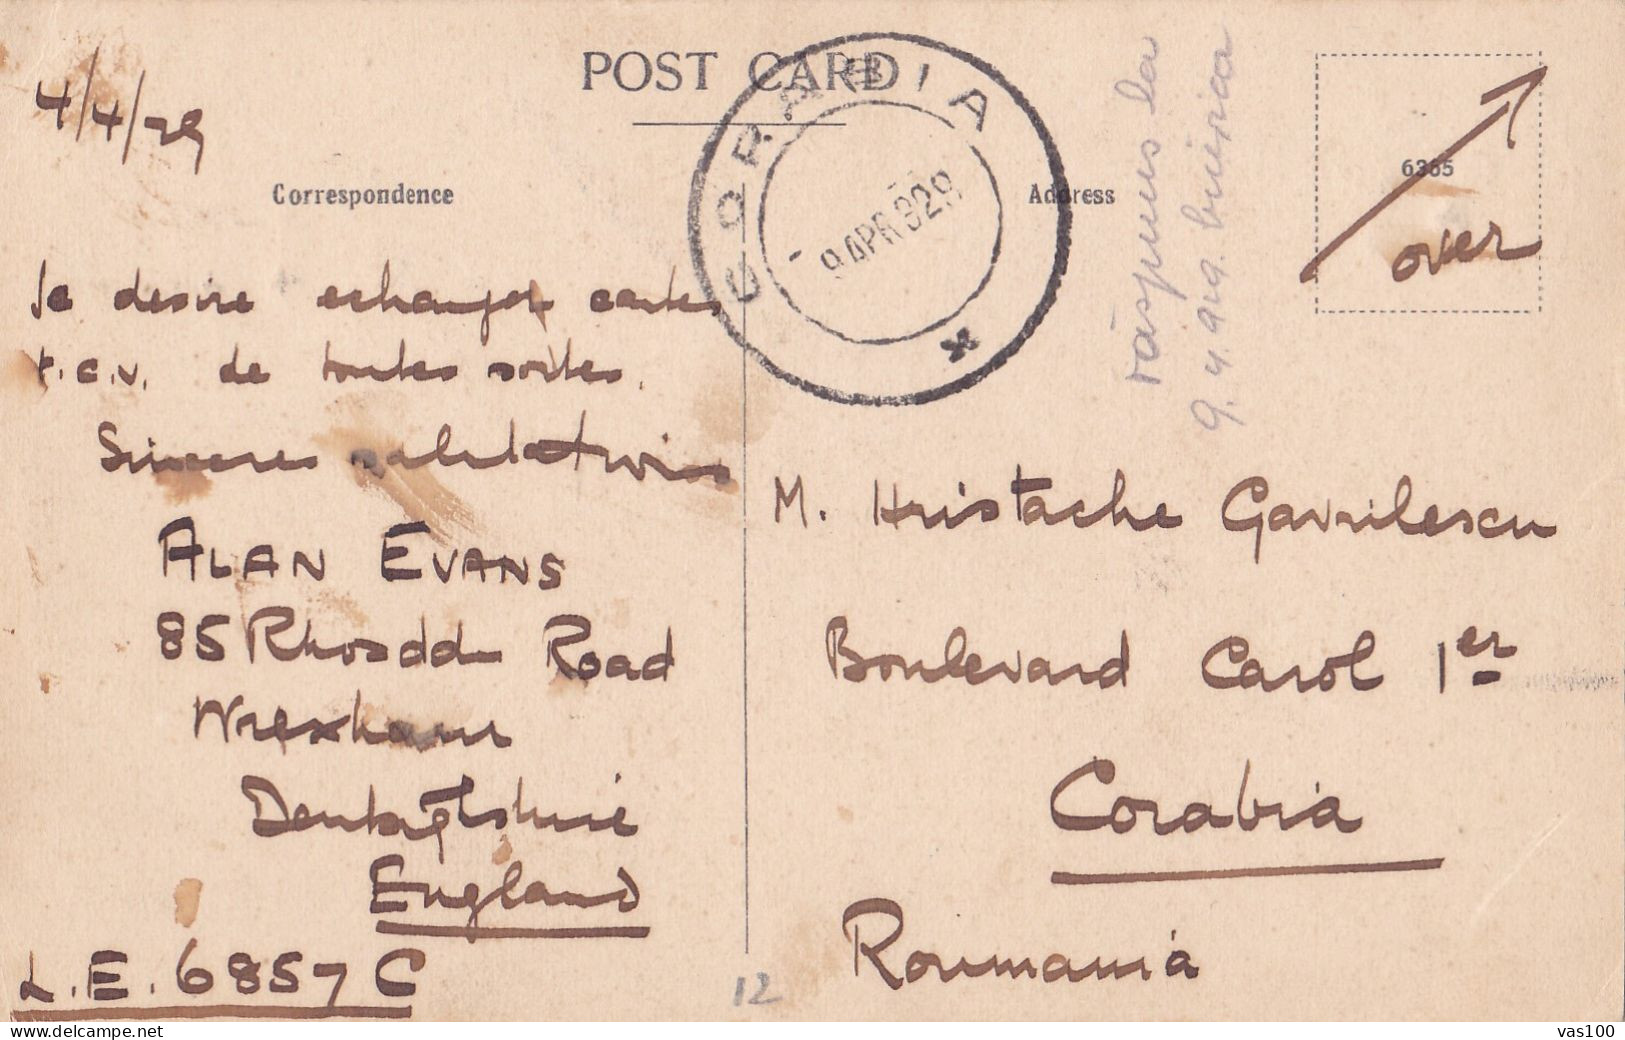 POST CARD
4/4/29
Correspondence
Address
6365
over
CORABIA
9 APR 929
Je desire echanger cartes
t.c.v. de toutes sortes.
Sinceres salutations
ALAN EVANS
85 Rhosddu Road
Wrexham
Denbighshire
England
L.E. 6857 C
M. Hristache Gavrilescu
Boulevard Carol 1er
Corabia
Roumania
răspuns la
9. 4. 929.
12
vas100
www.delcampe.net